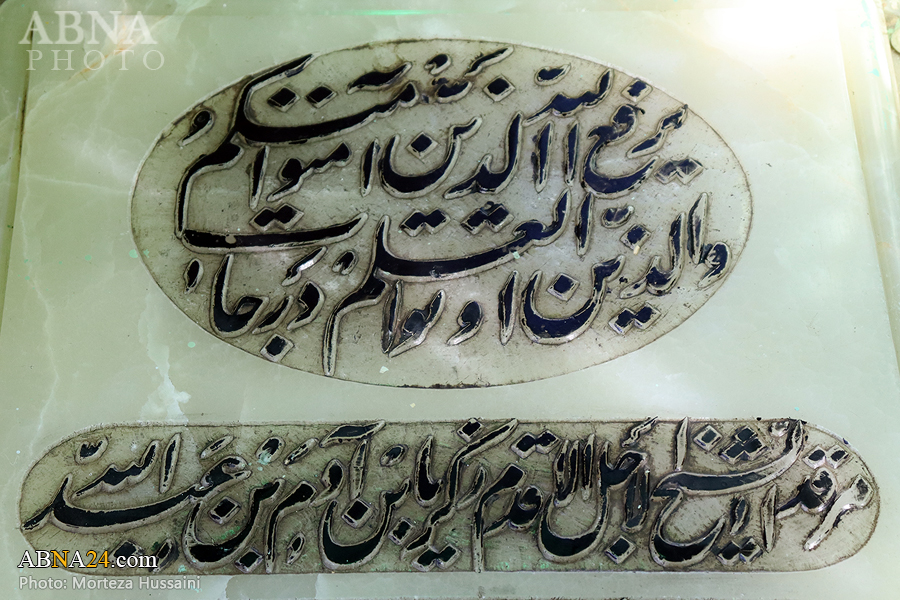 ABNA
PHOTO
يرفع الله الذين امنوا منكم
والذين اوتوا العلم درجات
مرقد الشيخ الاجل الاقدم زكريا بن آدم بن عبد الله
ABNA24.com
Photo: Morteza Hussaini